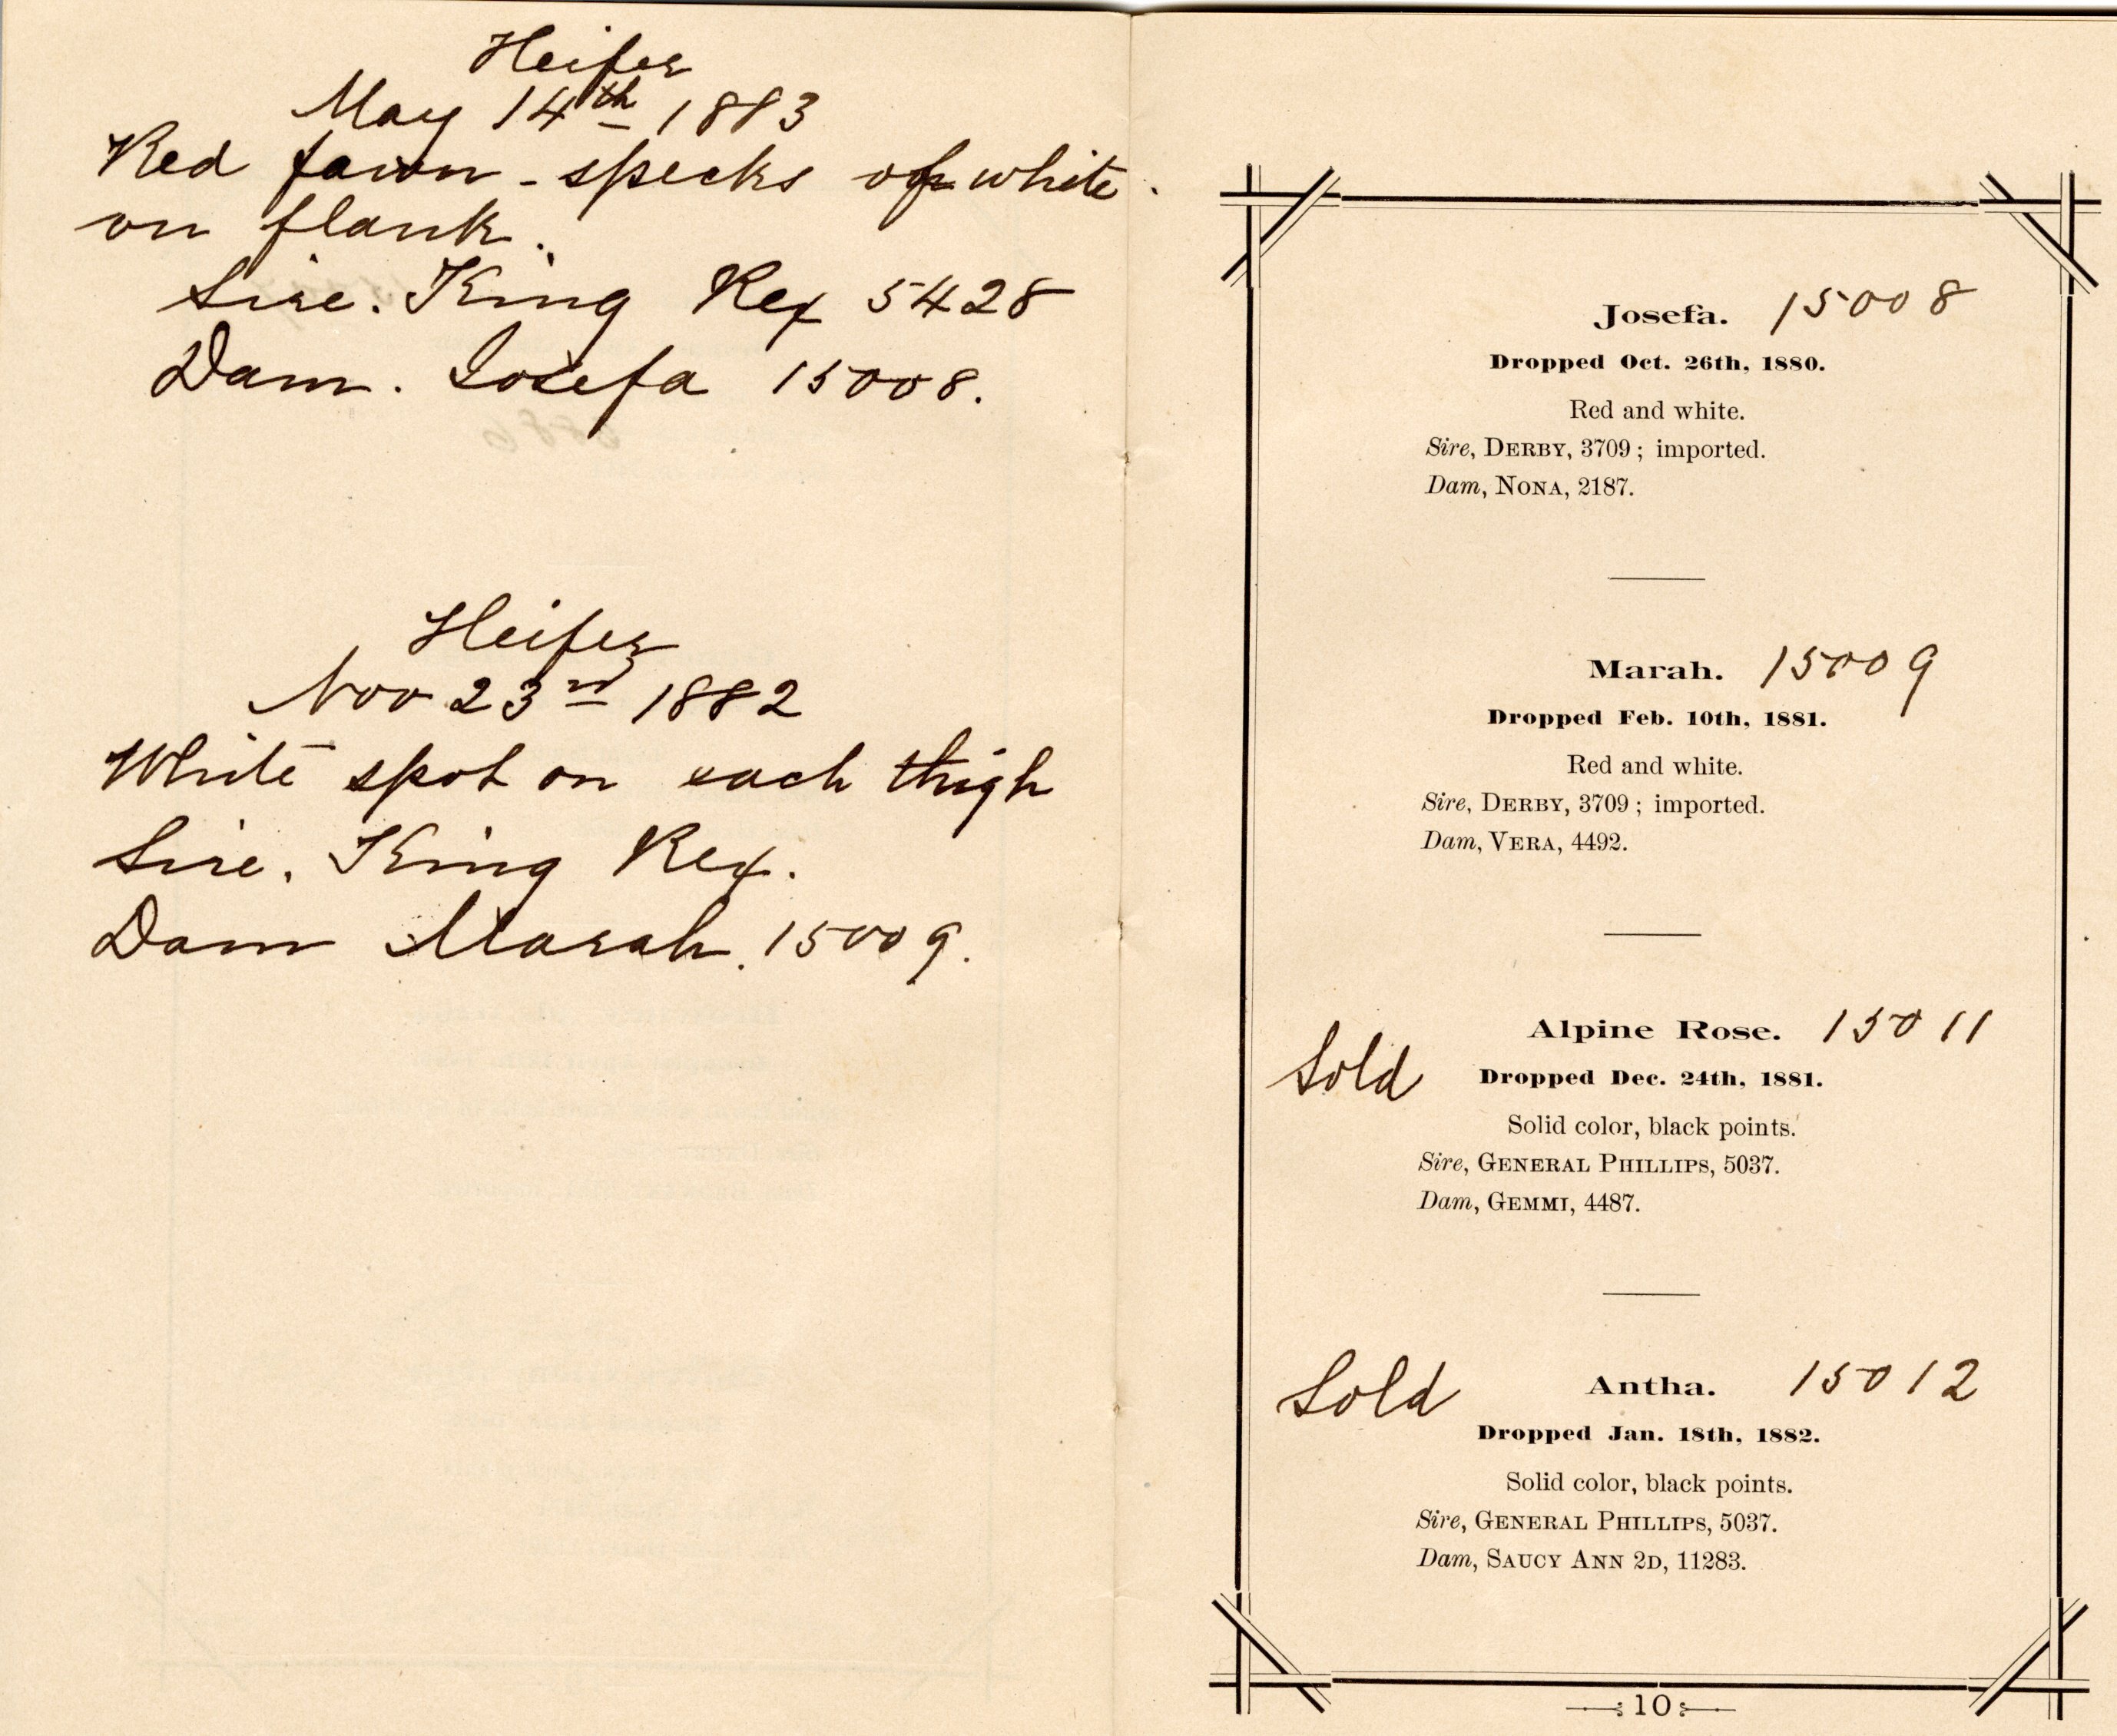 Heifer
May 14th 1883
Red fawn - specks of white.
on flank.
Sire. King Rex 5428
Dam. Josefa 15008.
Heifer
Nov 23rd 1882
White spot on each thigh
Sire. King Rex.
Dam Marah. 15009.
Josefa. 15008
Dropped Oct. 26th, 1880.
Red and white.
Sire, DERBY, 3709; imported.
Dam, NONA, 2187.
Marah. 15009
Dropped Feb. 10th, 1881.
Red and white.
Sire, DERBY, 3709; imported.
Dam, VERA, 4492.
Alpine Rose. 15011
Sold Dropped Dec. 24th, 1881.
Solid color, black points.
Sire, GENERAL PHILLIPS, 5037.
Dam, GEMMI, 4487.
Sold Antha. 15012
Dropped Jan. 18th, 1882.
Solid color, black points.
Sire, GENERAL PHILLIPS, 5037.
Dam, SAUCY ANN 2D, 11283.
10